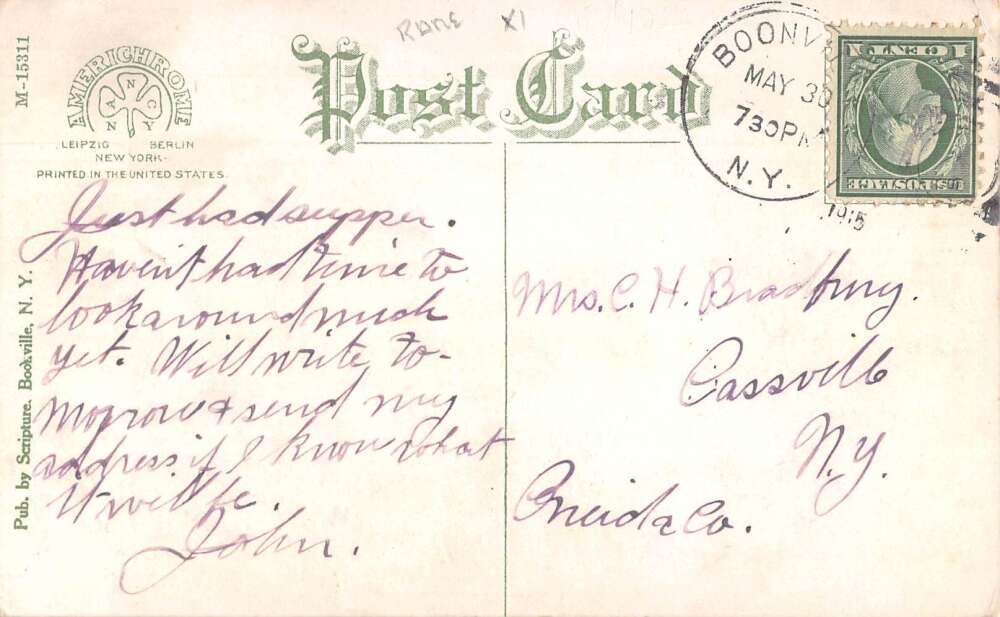 RARE XI
M-15311
AMERICHROME
A N C
N Y
LEIPZIG BERLIN
NEW YORK
PRINTED IN THE UNITED STATES.
Pub. by Scripture. Bookville, N. Y.
Post Card
BOONV
MAY 30
730PM
N.Y.
1915
U.S. POSTAGE
1 CENT 1
Just had supper.
Haven't had time to
look around much
yet. Will write to-
morow & send my
address if I know what
it will be.
John.
Mrs. C. H. Bradbury.
Cassville
N.Y.
Oneida Co.